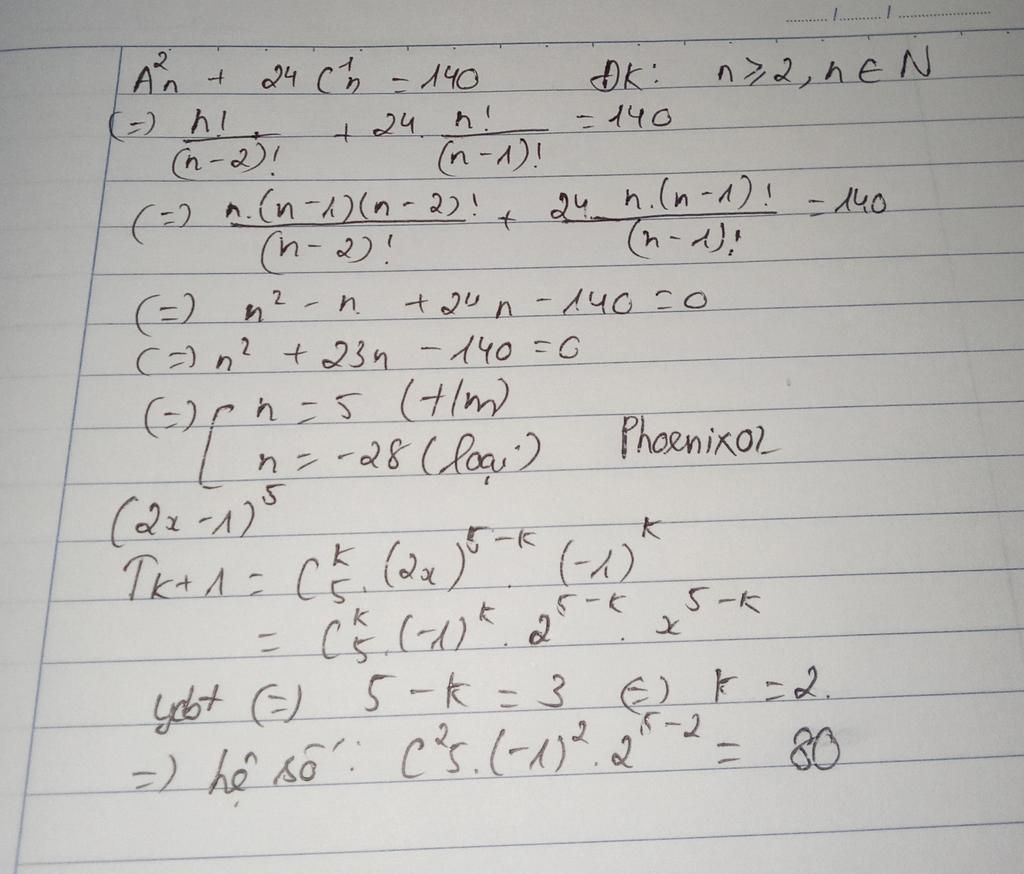 A²n + 24 C¹n = 140 ĐK: n ⩾ 2, n ∈ N
(=) n!/(n-2)! + 24. n!/(n-1)! = 140
(=) n.(n-1)(n-2)!/(n-2)! + 24. n.(n-1)!/(n-1)! = 140
(=) n² - n + 24n - 140 = 0
(=) n² + 23n - 140 = 0
(=) [ n = 5 (t/m)
n = -28 (loại) Phoenix02
(2x -1)⁵
Tk+1 = C₅ᵏ.(2x)⁵⁻ᵏ.(-1)ᵏ
= C₅ᵏ.(-1)ᵏ.2⁵⁻ᵏ.x⁵⁻ᵏ
ycbt (=) 5 - k = 3 (=) k = 2.
=) hệ số: C²5.(-1)².2⁵⁻² = 80